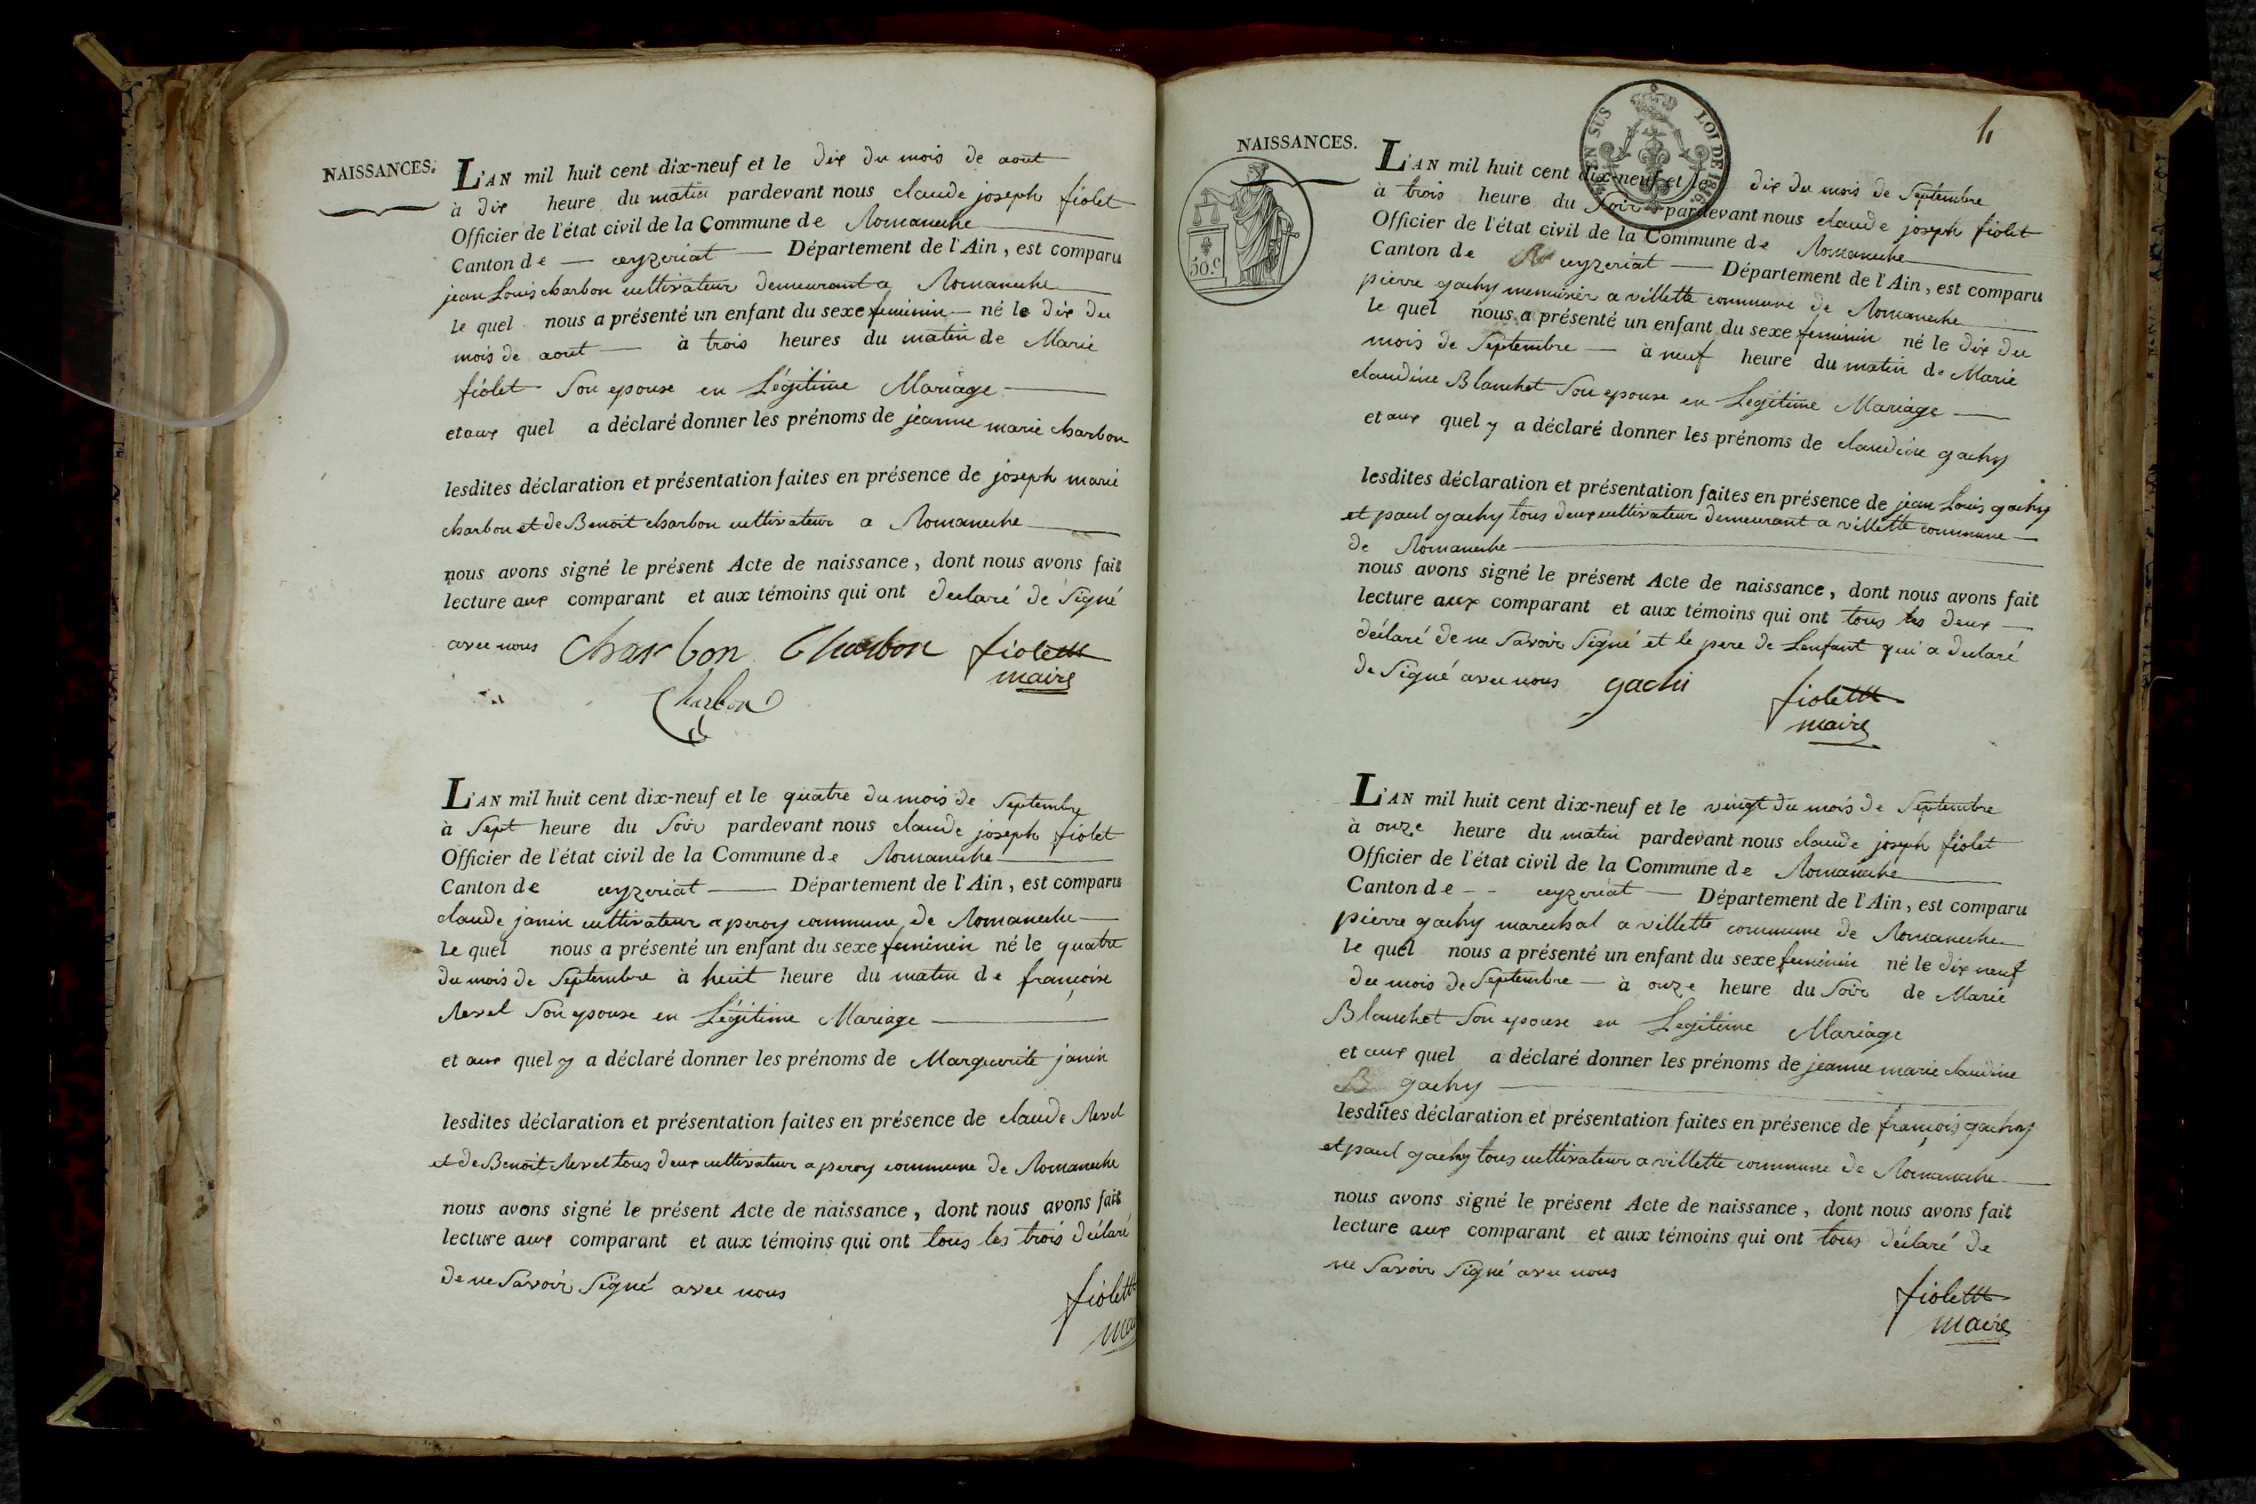 NAISSANCES.
L'AN mil huit cent dix-neuf et le dix du mois de aout
à dix heure du matin pardevant nous claude joseph fiolet
Officier de l'état civil de la Commune de Romaneche
Canton de ceyzeriat Département de l'Ain, est comparu
jean Louis charbon cultivateur demeurant a Romaneche
le quel nous a présenté un enfant du sexe feminin né le dix du
mois de aout à trois heures du matin de Marie
fiolet Son epouse en Légitime Mariage
et aux quel a déclaré donner les prénoms de jeanne marie charbon
lesdites déclaration et présentation faites en présence de joseph marie
charbon et de Benoit charbon cultivateur a Romaneche
nous avons signé le présent Acte de naissance, dont nous avons fait
lecture aux comparant et aux témoins qui ont declaré de Signé
avec nous Charbon Charbon fiolett
maire
Charbon
L'AN mil huit cent dix-neuf et le quatre du mois de Septembre
à Sept heure du Soir pardevant nous claude joseph fiolet
Officier de l'état civil de la Commune de Romaneche
Canton de ceyzeriat Département de l'Ain, est comparu
claude janin cultivateur a peroy commune de Romaneche
le quel nous a présenté un enfant du sexe feminin né le quatre
du mois de Septembre à huit heure du matin de françoise
Revel Son epouse en Légitime Mariage
et aux quel y a déclaré donner les prénoms de Marguerite janin
lesdites déclaration et présentation faites en présence de claude Revel
et de Benoit Revel tous deux cultivateur a peroy commune de Romaneche
nous avons signé le présent Acte de naissance, dont nous avons fait
lecture aux comparant et aux témoins qui ont tous les trois déclaré
de ne Savoir Signé avec nous
fiolett
NAISSANCES.
4
EN SUS LOI DE 1816.
50.c
L'AN mil huit cent dix-neuf et le dix du mois de Septembre
à trois heure du Soir pardevant nous claude joseph fiolet
Officier de l'état civil de la Commune de Romaneche
Canton de ceyzeriat Département de l'Ain, est comparu
pierre gachy menuisier a villette commune de Romaneche
le quel nous a présenté un enfant du sexe feminin né le dix du
mois de Septembre à neuf heure du matin de Marie
claudine Blanchet Son epouse en Legitime Mariage
et aux quel y a déclaré donner les prénoms de claudine gachy
lesdites déclaration et présentation faites en présence de jean Louis gachy
et paul gachy tous deux cultivateur demeurant a villette commune
de Romaneche
nous avons signé le présent Acte de naissance, dont nous avons fait
lecture aux comparant et aux témoins qui ont tous les deux
déclaré de ne Savoir Signé et le pere de Lenfant qui a declaré
de Signé avec nous gachi fiolett
maire
L'AN mil huit cent dix-neuf et le vingt du mois de Septembre
à onze heure du matin pardevant nous claude joseph fiolet
Officier de l'état civil de la Commune de Romaneche
Canton de ceyzeriat Département de l'Ain, est comparu
pierre gachy marechal a villette commune de Romaneche
le quel nous a présenté un enfant du sexe feminin né le dix neuf
du mois de Septembre à onze heure du Soir de Marie
Blanchet Son epouse en Legitime Mariage
et aux quel a déclaré donner les prénoms de jeanne marie claudine
gachy
lesdites déclaration et présentation faites en présence de françois gachy
et paul gachy tous cultivateur a villette commune de Romaneche
nous avons signé le présent Acte de naissance, dont nous avons fait
lecture aux comparant et aux témoins qui ont tous déclaré de
ne Savoir Signé avec nous
fiolett
maire